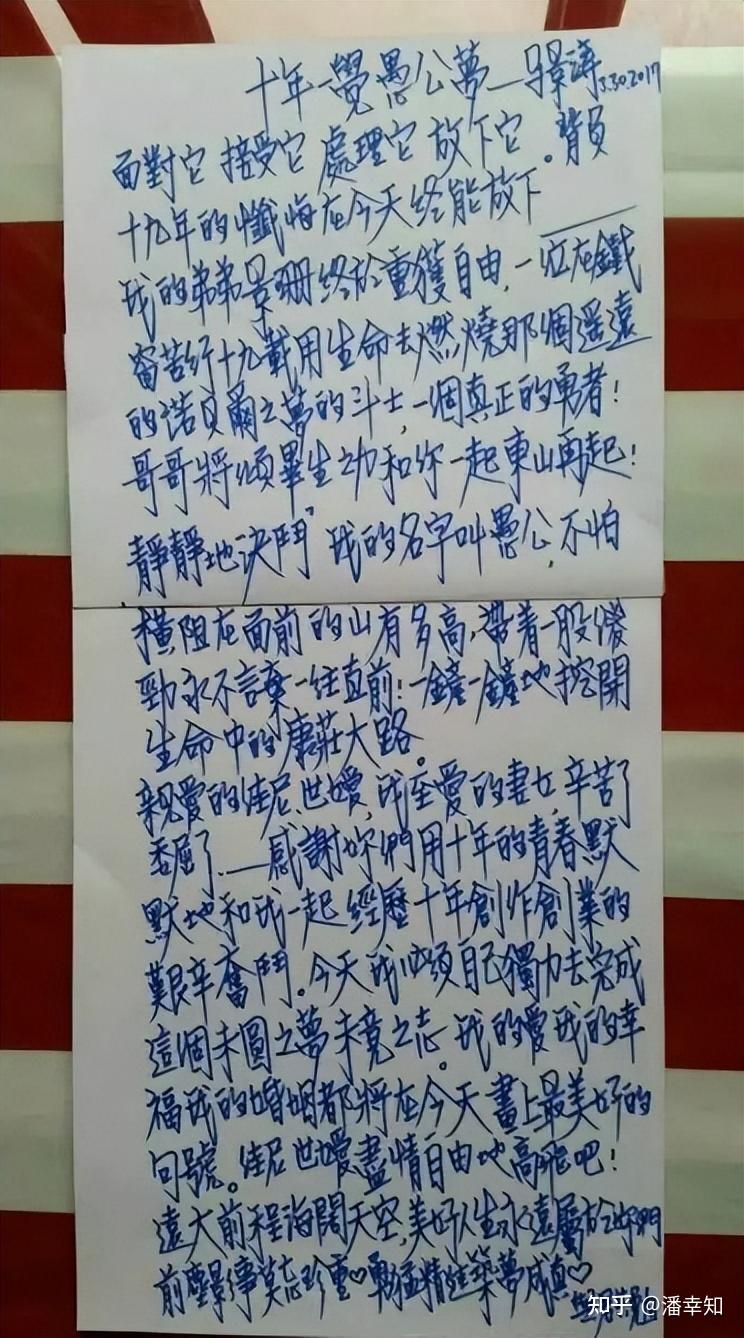 十年一覺愚公夢—景濤 3.30.2017
面對它 接受它 處理它 放下它。背負
十九年的懺悔在今天终能放下——
我的弟弟景珊終於重獲自由,一位在鐵
窗苦行十九載用生命去燃燒那個遥遠
的诺贝爾之夢的斗士,一個真正的勇者!
哥哥將傾畢生之力和你一起東山再起!
靜靜地決鬥,我的名字叫愚公,不怕
橫阻在面前的山有多高,帶着一股傻
勁永不言棄一往直前!一鏟一鏟地挖開
生命中的康莊大路。
親愛的佳尼、世嬡,我至愛的妻女,辛苦了
委屈了——感謝妳們用十年的青春默
默地和我一起經歷十年創作創業的
艱辛奮鬥。今天我必須自己獨力去完成
這個未圓之夢未竟之志。我的愛我的幸
福我的婚姻都將在今天畫上最美好的
句號。佳尼世嬡盡情自由地高飛吧!
遠大前程海闊天空,美好人生永遠屬於妳們
前塵影事莫忘珍重♡勇猛精進築夢成真♡
知乎 @潘幸知